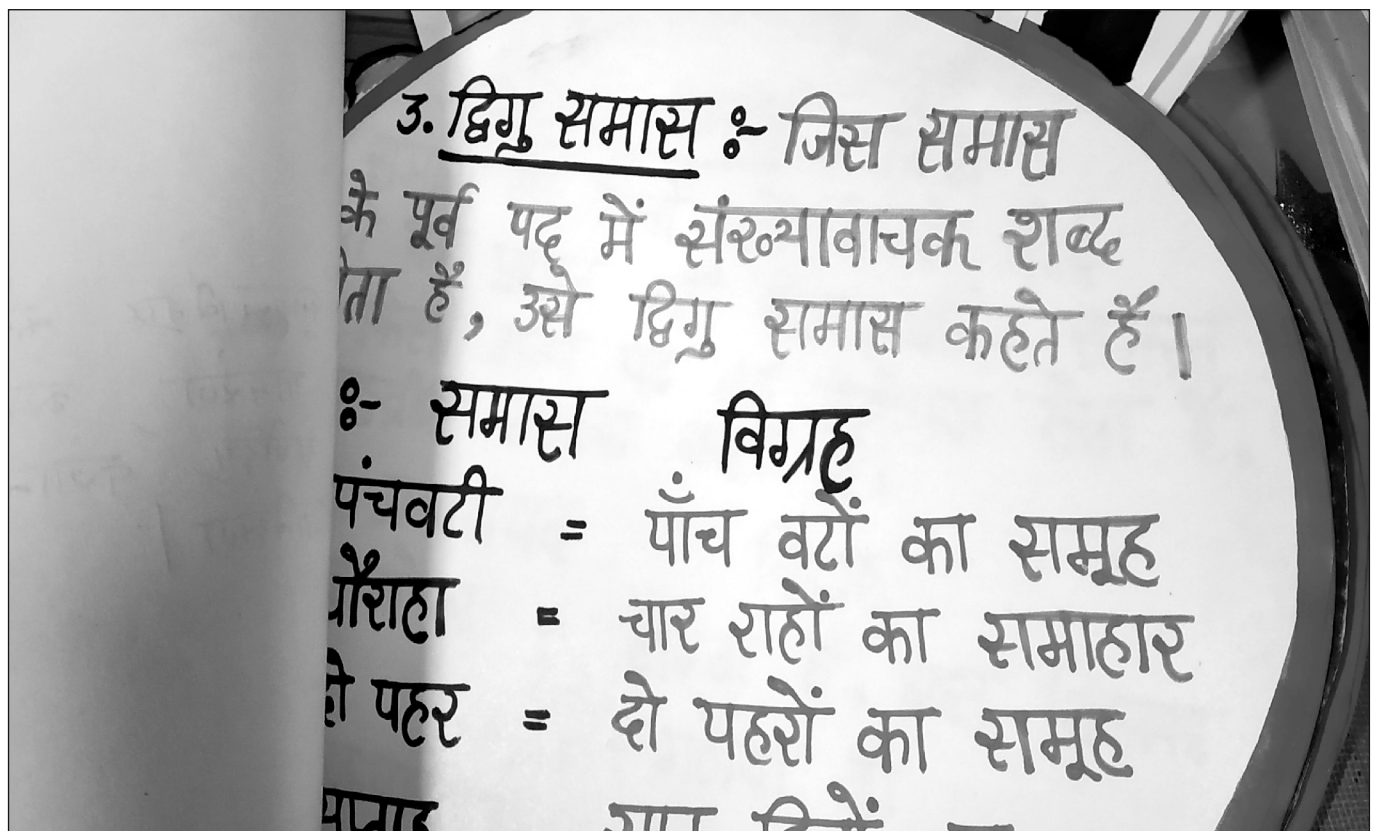 3. द्विगु समास :- जिस समास
के पूर्व पद में संख्यावाचक शब्द
है, उसे द्विगु समास कहते है।
:- समास विग्रह
पंचवटी = पाँच वटों का समूह
चौराहा = चार राहों का समाहार
दो पहर = दो पहरों का समूह